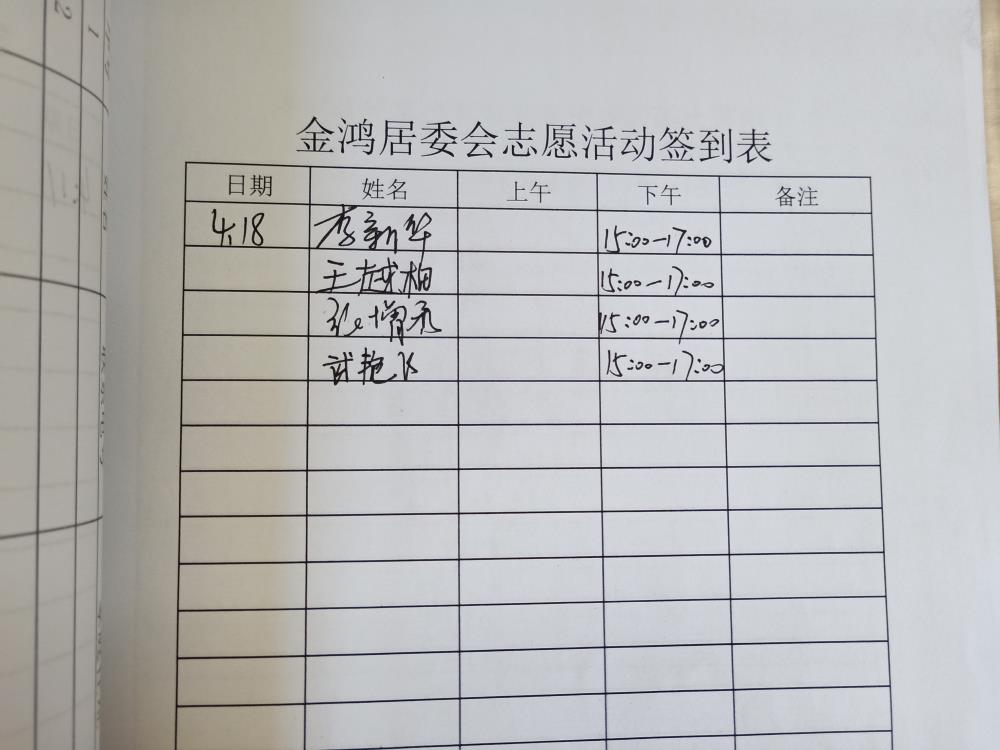 金鸿居委会志愿活动签到表
日期 姓名 上午 下午 备注
4.18 李新华 15:00-17:00
王越相 15:00-17:00
张增禾 15:00-17:00
15:00-17:00